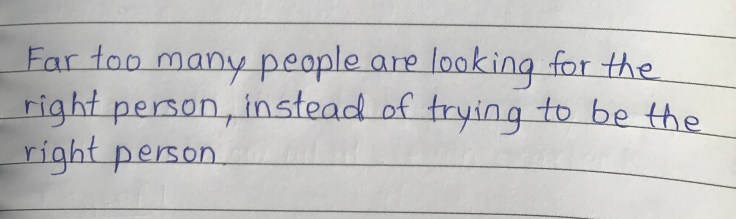 Far too many people are looking for the
right person, instead of trying to be the
right person.